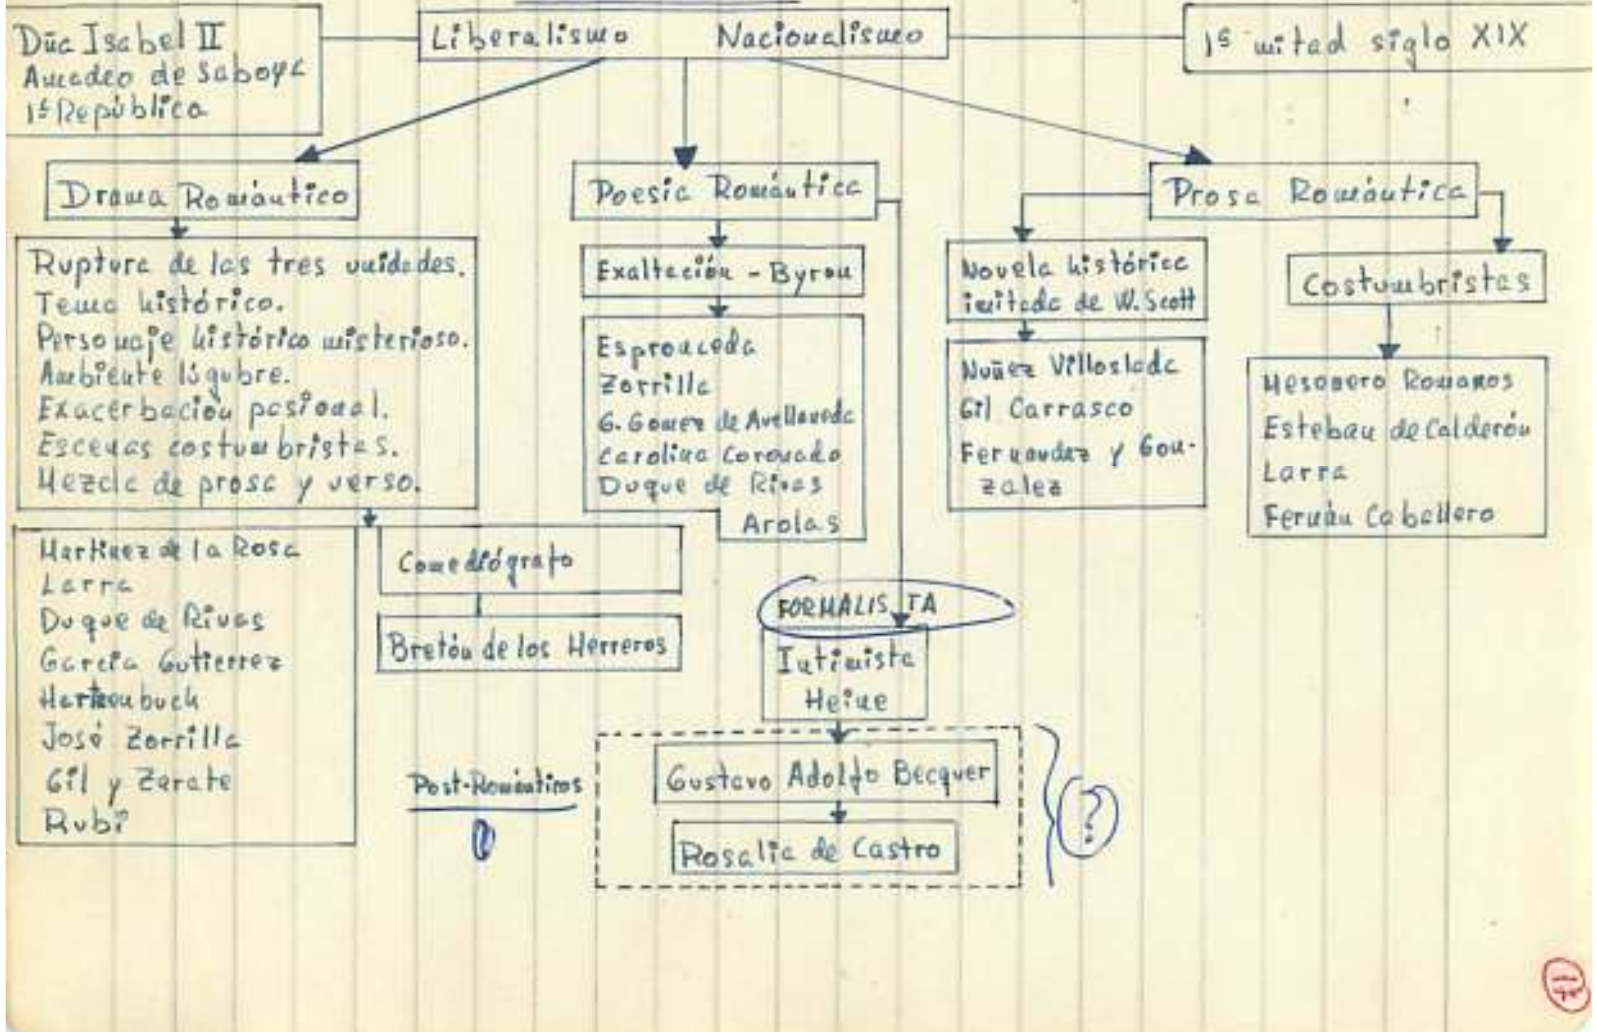 Dña Isabel II
Amadeo de Saboya
1ª República
Liberalismo Nacionalismo
1ª mitad siglo XIX
Drama Romántico
Ruptura de las tres unidades.
Tema histórico.
Personaje histórico misterioso.
Ambiente lúgubre.
Exacerbación pasional.
Escenas costumbristas.
Mezcla de prosa y verso.
Martinez de la Rosa
Larra
Duque de Rivas
García Gutierrez
Hartzenbuch
José Zorrilla
Gil y Zarate
Rubí
Comediógrafo
Bretón de los Herreros
Poesia Romántica
Exaltación - Byron
Espronceda
Zorrilla
G. Gomez de Avellaneda
Carolina Coronado
Duque de Rivas
Arolas
FORMALISTA
Intimista
Heine
Post-Románticos
Gustavo Adolfo Becquer
Rosalia de Castro
?
Prosa Romántica
Novela histórica
imitada de W. Scott
Nuñez Villoslada
Gil Carrasco
Fernandez y Gon-
zalez
Costumbristas
Mesonero Romanos
Esteban de Calderón
Larra
Fernán Caballero